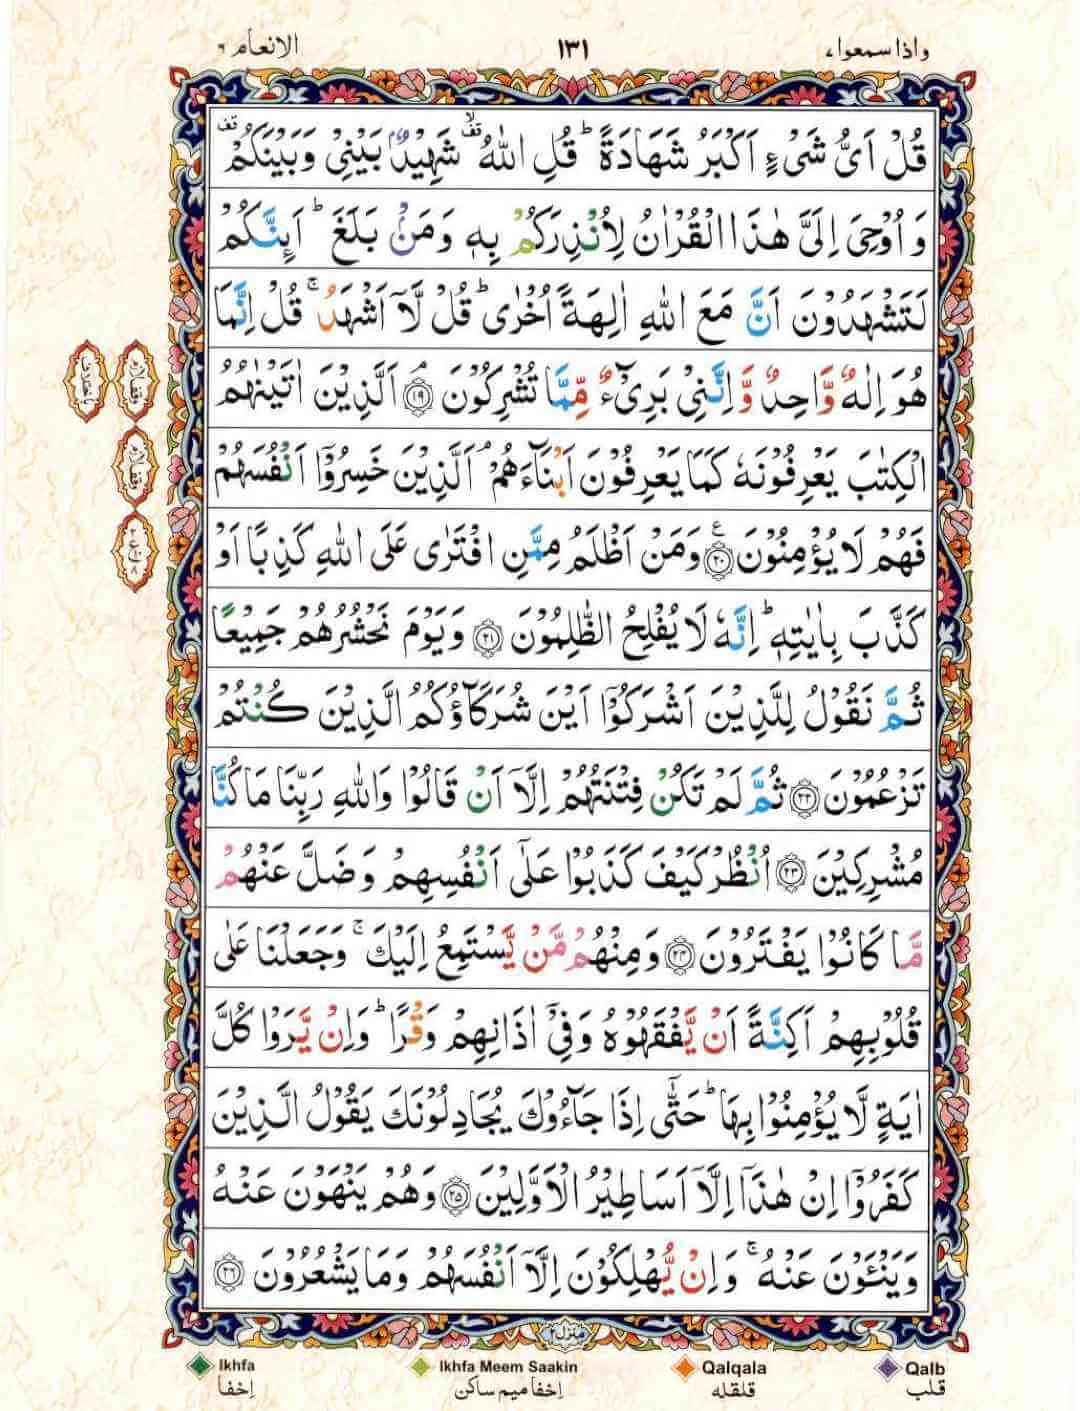 واذا سمعوا ٧ ١٣١ الانعام ٦
قُلْ اَىُّ شَىْءٍ اَكْبَرُ شَهَادَةً ؕ قُلِ اللّٰهُ ۙ قف شَهِيْدٌۢ بَيْنِىْ وَبَيْنَكُمْ قف
وَ اُوْحِىَ اِلَىَّ هٰذَا الْقُرْاٰنُ لِاُنْذِرَكُمْ بِهٖ وَمَنْۢ بَلَغَ ؕ اَىِٕنَّكُمْ
لَتَشْهَدُوْنَ اَنَّ مَعَ اللّٰهِ اٰلِهَةً اُخْرٰى ؕ قُلْ لَّاۤ اَشْهَدُ ۚ قُلْ اِنَّمَا
هُوَ اِلٰهٌ وَّاحِدٌ وَّاِنَّنِىْ بَرِىْٓءٌ مِّمَّا تُشْرِكُوْنَ ۘ ﴿١٩﴾ اَلَّذِيْنَ اٰتَيْنٰهُمُ
الْكِتٰبَ يَعْرِفُوْنَهٗ كَمَا يَعْرِفُوْنَ اَبْنَآءَهُمْ ۘ اَلَّذِيْنَ خَسِرُوْۤا اَنْفُسَهُمْ
فَهُمْ لَا يُؤْمِنُوْنَ ﴿٢٠﴾ ع وَمَنْ اَظْلَمُ مِمَّنِ افْتَرٰى عَلَى اللّٰهِ كَذِبًا اَوْ
كَذَّبَ بِاٰيٰتِهٖ ؕ اِنَّهٗ لَا يُفْلِحُ الظّٰلِمُوْنَ ﴿٢١﴾ وَيَوْمَ نَحْشُرُهُمْ جَمِيْعًا
ثُمَّ نَقُوْلُ لِلَّذِيْنَ اَشْرَكُوْۤا اَيْنَ شُرَكَآؤُكُمُ الَّذِيْنَ كُنْتُمْ
تَزْعُمُوْنَ ﴿٢٢﴾ ثُمَّ لَمْ تَكُنْ فِتْنَتُهُمْ اِلَّاۤ اَنْ قَالُوْا وَاللّٰهِ رَبِّنَا مَا كُنَّا
مُشْرِكِيْنَ ﴿٢٣﴾ اُنْظُرْ كَيْفَ كَذَبُوْا عَلٰٓى اَنْفُسِهِمْ وَضَلَّ عَنْهُمْ
مَّا كَانُوْا يَفْتَرُوْنَ ﴿٢٤﴾ وَمِنْهُمْ مَّنْ يَّسْتَمِعُ اِلَيْكَ ۚ وَجَعَلْنَا عَلٰى
قُلُوْبِهِمْ اَكِنَّةً اَنْ يَّفْقَهُوْهُ وَفِىْۤ اٰذَانِهِمْ وَقْرًا ؕ وَاِنْ يَّرَوْا كُلَّ
اٰيَةٍ لَّا يُؤْمِنُوْا بِهَا ؕ حَتّٰٓى اِذَا جَآءُوْكَ يُجَادِلُوْنَكَ يَقُوْلُ الَّذِيْنَ
كَفَرُوْۤا اِنْ هٰذَاۤ اِلَّاۤ اَسَاطِيْرُ الْاَوَّلِيْنَ ﴿٢٥﴾ وَهُمْ يَنْهَوْنَ عَنْهُ
وَيَنْـَٔوْنَ عَنْهُ ۚ وَاِنْ يُّهْلِكُوْنَ اِلَّاۤ اَنْفُسَهُمْ وَمَا يَشْعُرُوْنَ ﴿٢٦﴾
وقف لازم
وقف لازم
منزل ٢
Ikhfa Ikhfa Meem Saakin Qalqala Qalb
اِخفا اِخفا میم ساکن قلقله قلب